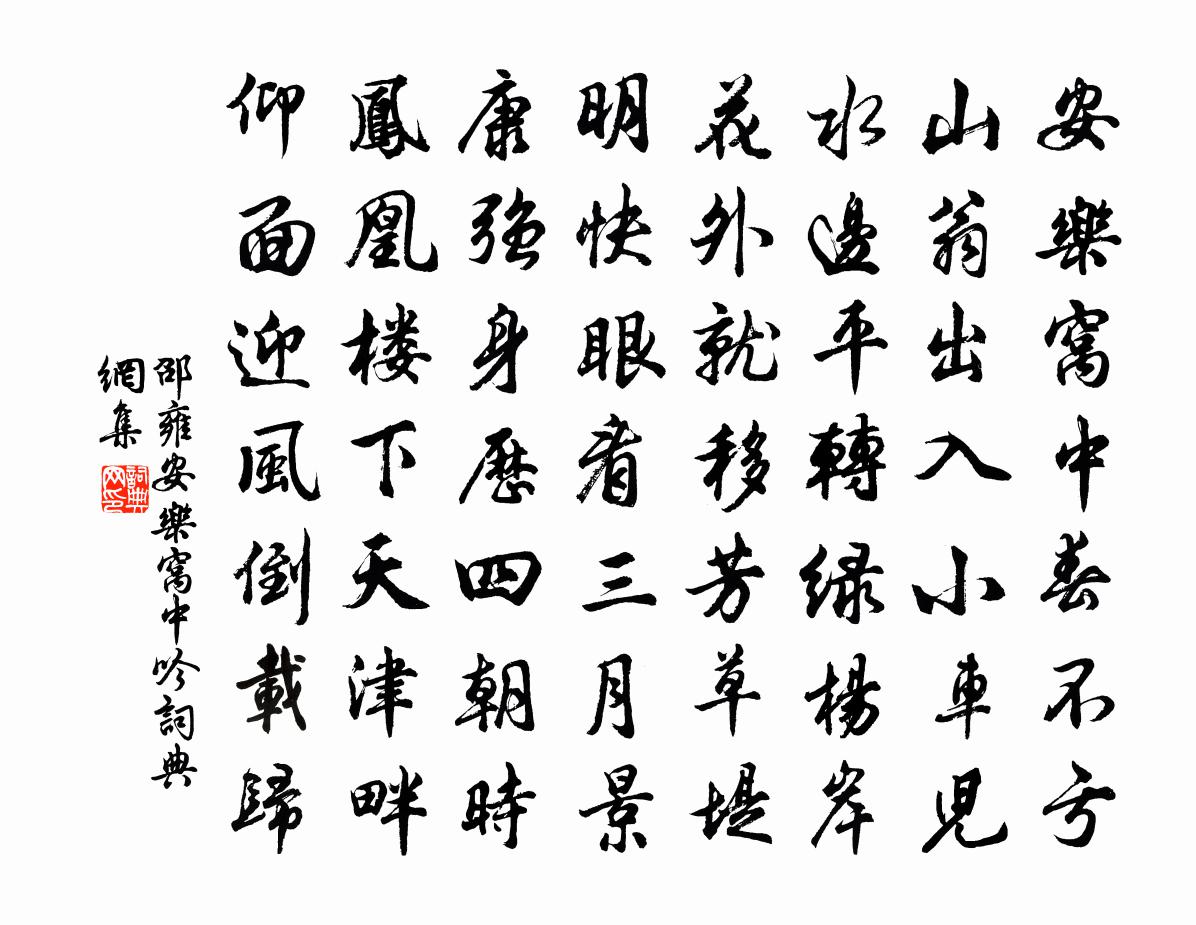 安樂窩中春不亏
山翁出入小車兒
水邊平轉緑楊岸
花外就移芳草堤
明快眼看三月景
康强身歷四朝時
鳳凰楼下天津畔
仰面迎風倒載歸
邵雍安樂窩中吟詞典
網集
詞典
网印